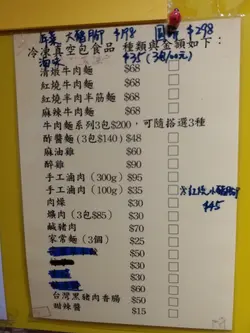 大豬腳 $198 $298
冷凍真空包食品 種類與金額如下：
滷味 $35 (3包/100元)
清燉牛肉麵 $68
紅燒牛肉麵 $68
紅燒半肉半筋麵 $68
麻辣牛肉麵 $68
牛肉麵系列3包$200，可隨搭選3種
酢醬麵(3包$140) $48
麻油雞 $60
醉雞 $90
手工滷肉 (300g) $95
手工滷肉 (100g) $35
$45
肉燥 $30
爌肉 (3包$85) $30
鹹豬肉 $70
家常麵 (3個) $25
$50
$30
$30
$60
台灣黑豬肉香腸 $50
甜辣醬 $15